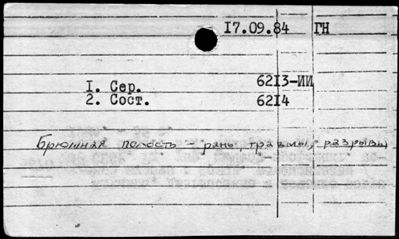 17.09.84 ГН
1. Сер. 6213-ИИ
2. Сост. 6214
Брюшная полость - раны, травмы, разрывы